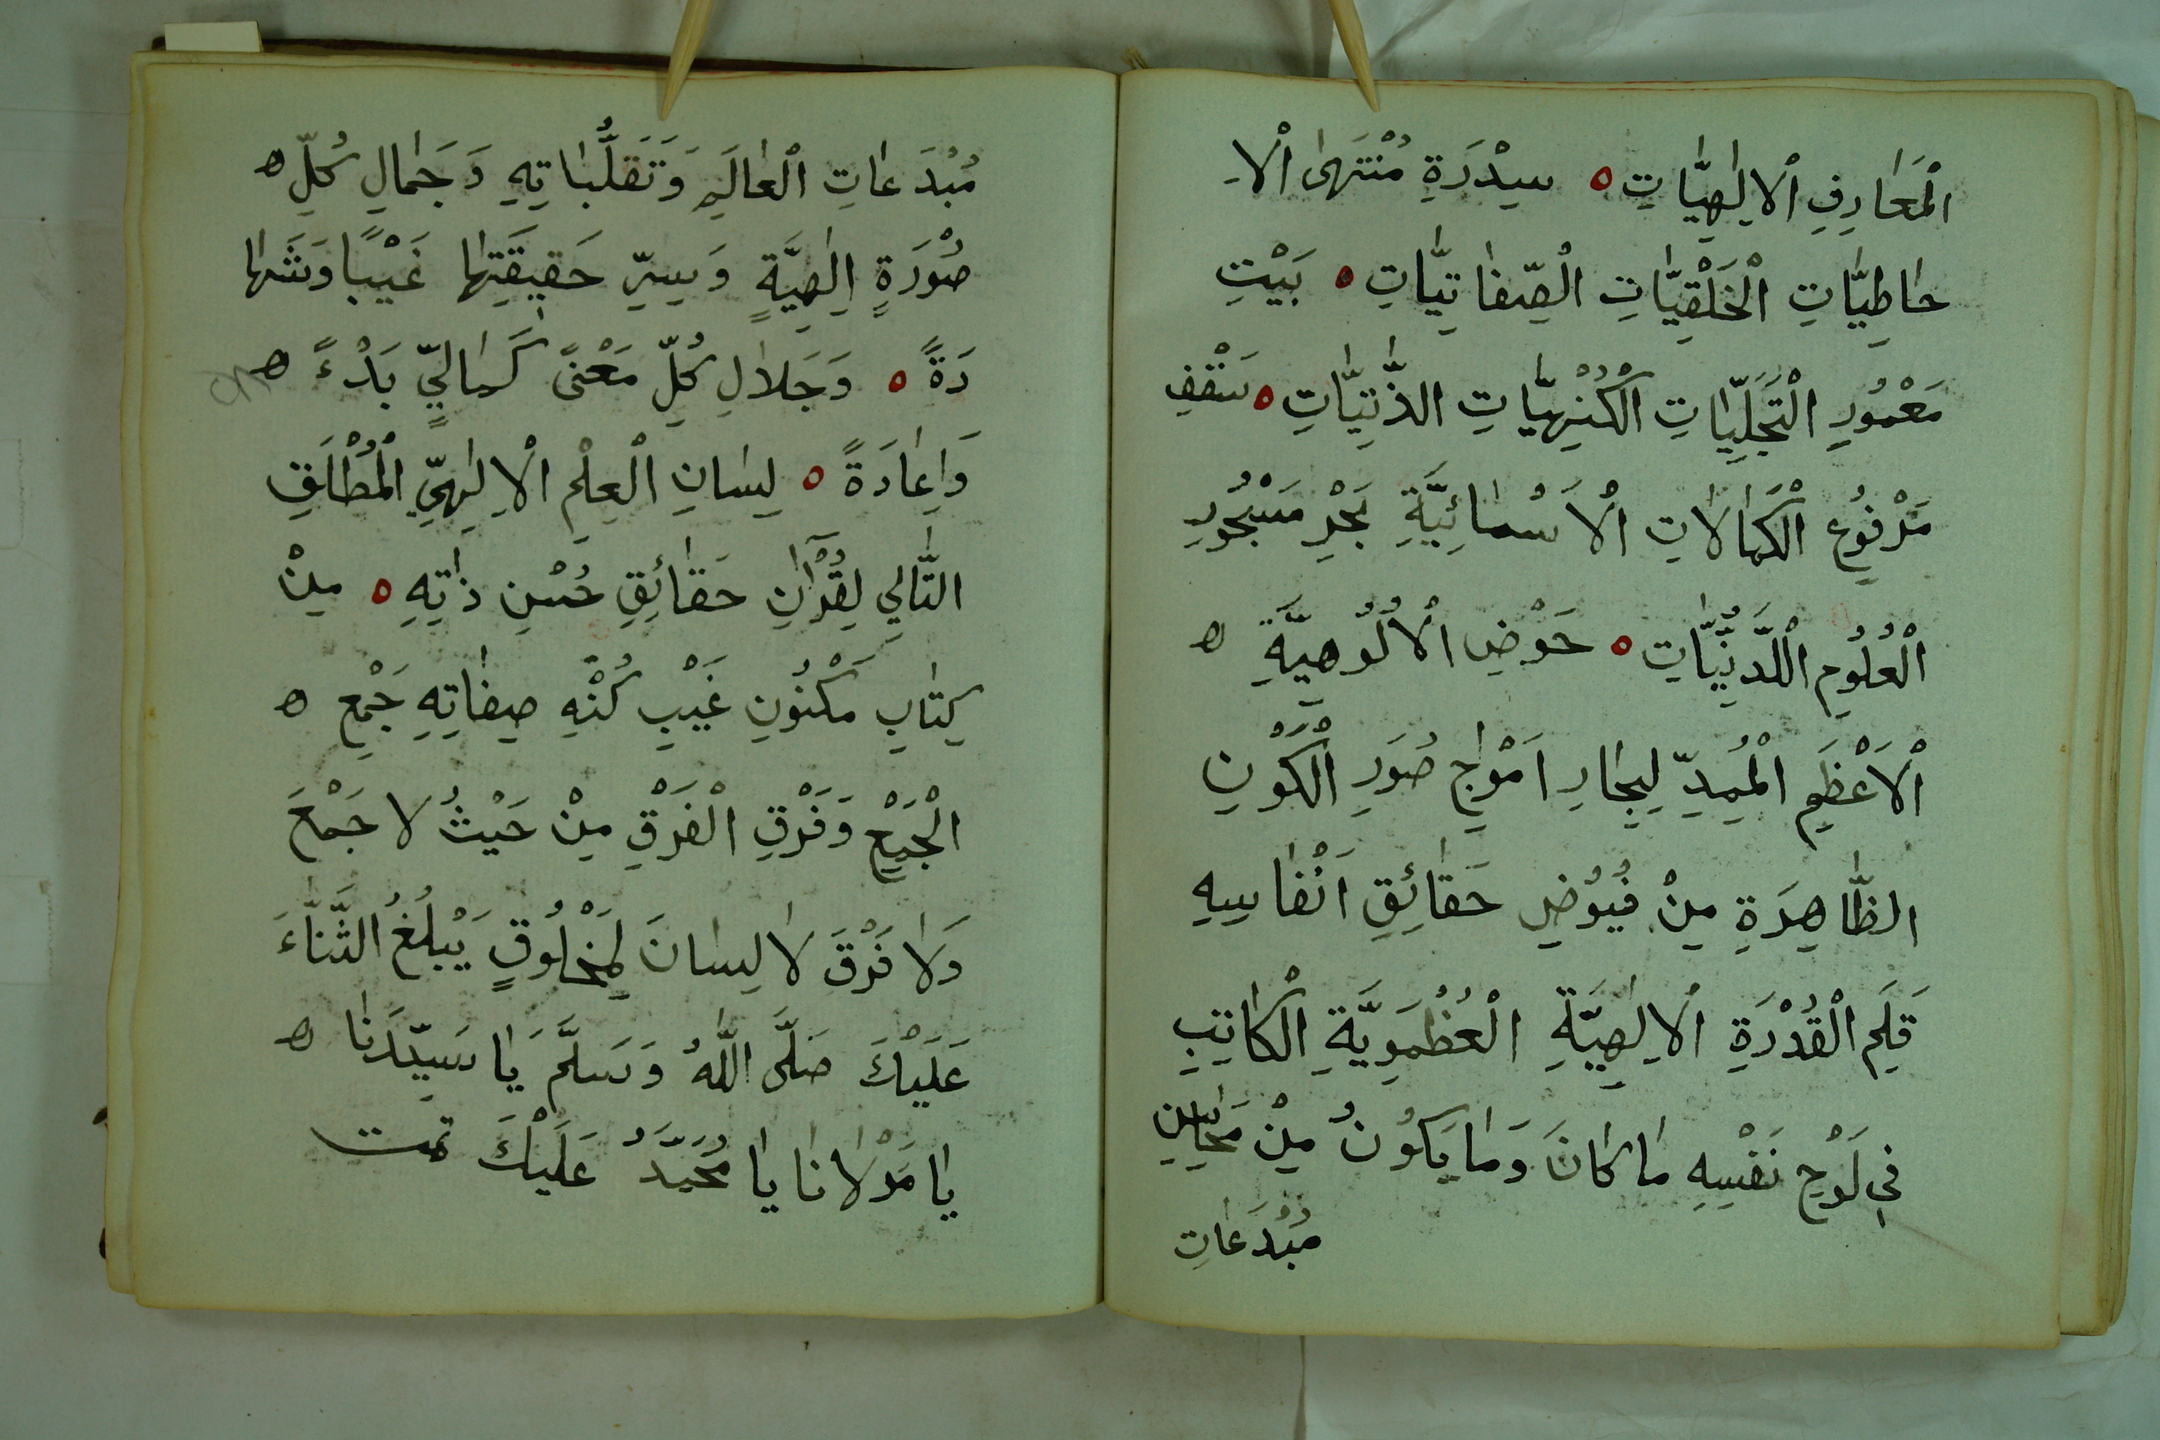 الْمَعَارِفِ الْاِلٰهِيَّاتِ ه سِدْرَةِ مُنْتَهَى الْاِ
حَاطِيَّاتِ الْخَلْقِيَّاتِ الْصِّفَاتِيَّاتِ ه بَيْتِ
مَعْمُورِ الْتَجَلِّيَّاتِ الْكُنْهِيَّاتِ الذَّتِيَّاتِ ه سَقْفِ
مَرْفُوعِ الْكَمَالَاتِ الْاَسْمَائِيَّةِ بَحْرِ مَسْجُورِ
الْعُلُومِ اللَّدُنِّيَّاتِ ه حَوْضِ الْاُلُوهِيَّةِ ه
الْاَعْظَمِ الْمُمِدِّ لِبِحَارِ اَمْوَاجِ صُوَرِ الْكَوْنِ
الظَّاهِرَةِ مِنْ فُيُوضِ حَقَائِقِ اَنْفَاسِهِ
قَلَمِ الْقُدْرَةِ الْاِلٰهِيَّةِ الْعُظْمَوِيَّةِ الْكَاتِبِ
فِي لَوْحِ نَفْسِهِ مَا كَانَ وَمَا يَكُونُ مِنْ مَحَاسِنِ
مُبْدَعَاتِ
مُبْدَعَاتِ الْعَالَمِ وَتَقَلُّبَاتِهِ وَجَمَالِ كُلِّ ه
صُورَةٍ اِلٰهِيَّةٍ وَسِرِّ حَقِيقَتِهَا غَيْبًا وَشَهَا
دَةً ه وَجَلَالِ كُلِّ مَعْنًى كَمَالِيٍّ بَدْءً ه
وَاِعَادَةً ه لِسَانِ الْعِلْمِ الْاِلٰهِيِّ الْمُطْلَقِ
التَّالِي لِقُرْآنِ حَقَائِقِ حُسْنِ ذَاتِهِ ه مِنْ
كِتَابِ مَكْنُونِ غَيْبِ كُنْهِ صِفَاتِهِ جَمْعِ ه
الْجَمْعِ وَفَرْقِ الْفَرْقِ مِنْ حَيْثُ لَا جَمْعَ
وَلَا فَرْقَ لَا لِسَانَ لِمَخْلُوقٍ يَبْلُغُ الثَّنَاءَ
عَلَيْكَ صَلَّى اللّٰهُ وَسَلَّمَ يَا سَيِّدَنَا ه
يَا مَوْلَانَا يَا مُحَمَّدُ عَلَيْكَ تمت